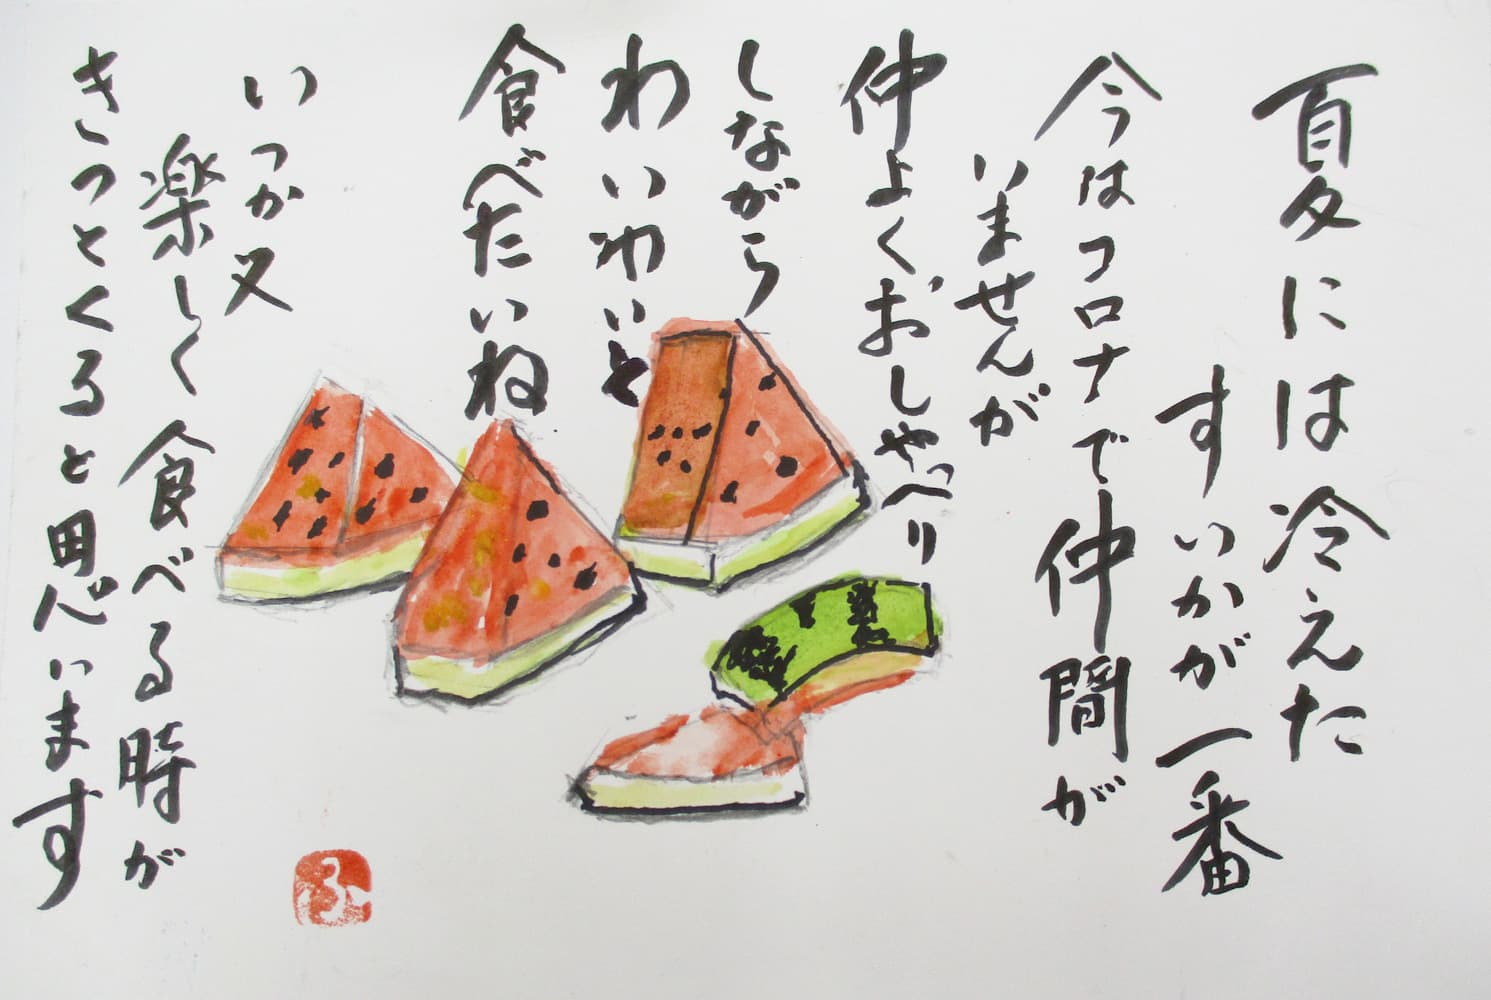 夏には冷えた
すいかが一番
今はコロナで仲間が
いませんが
仲よくおしゃべり
しながら
わいわいと
食べたいね
いつか又
楽しく食べる時が
きっとくると思います